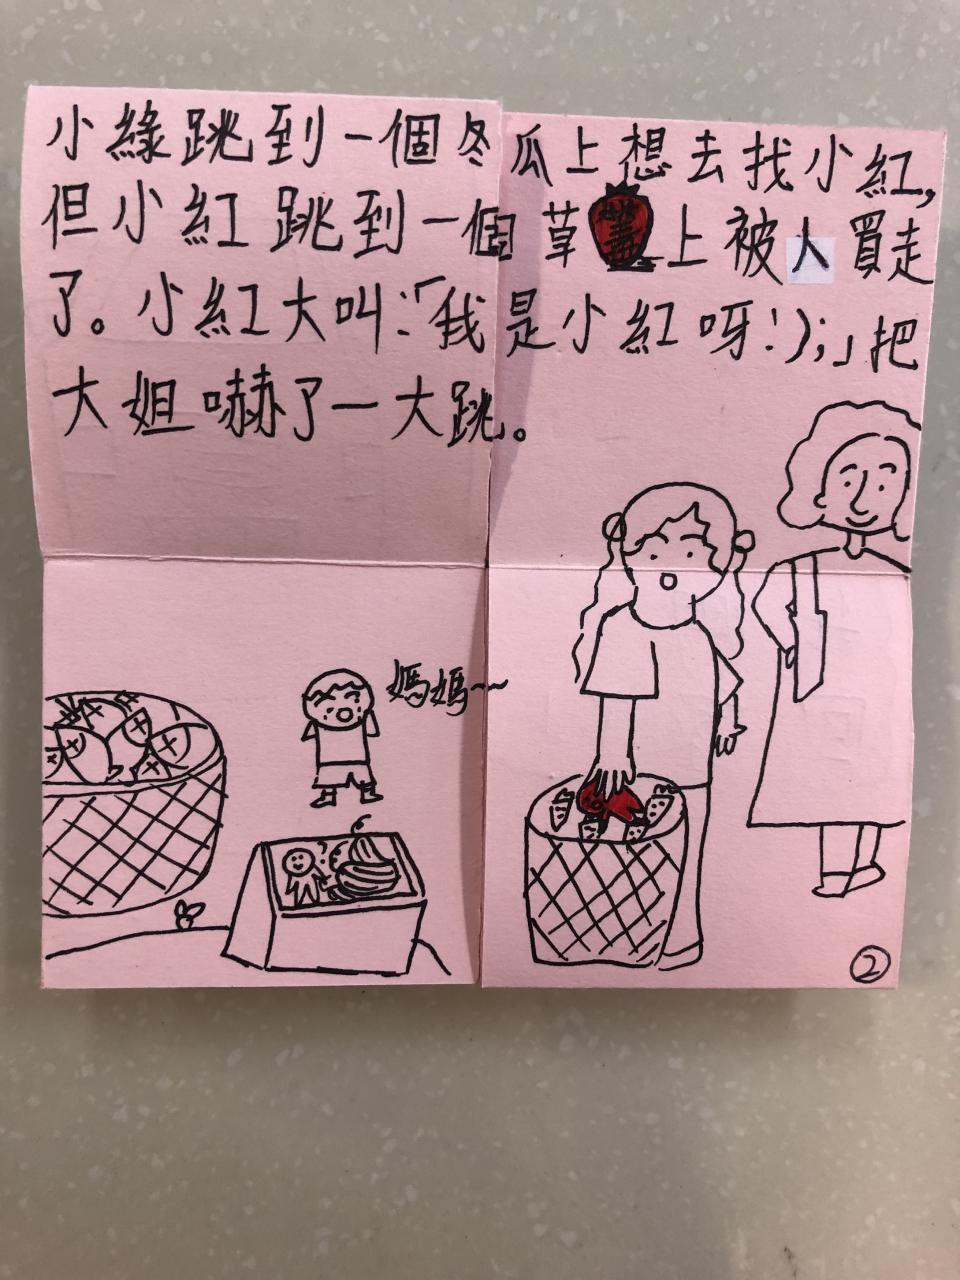 小緣跳到一個冬瓜上想去找小紅,
但小紅跳到一個草莓上被人買走
了。小紅大叫:「我是小紅呀!);」把
大姐嚇了一大跳。
媽媽~~
②